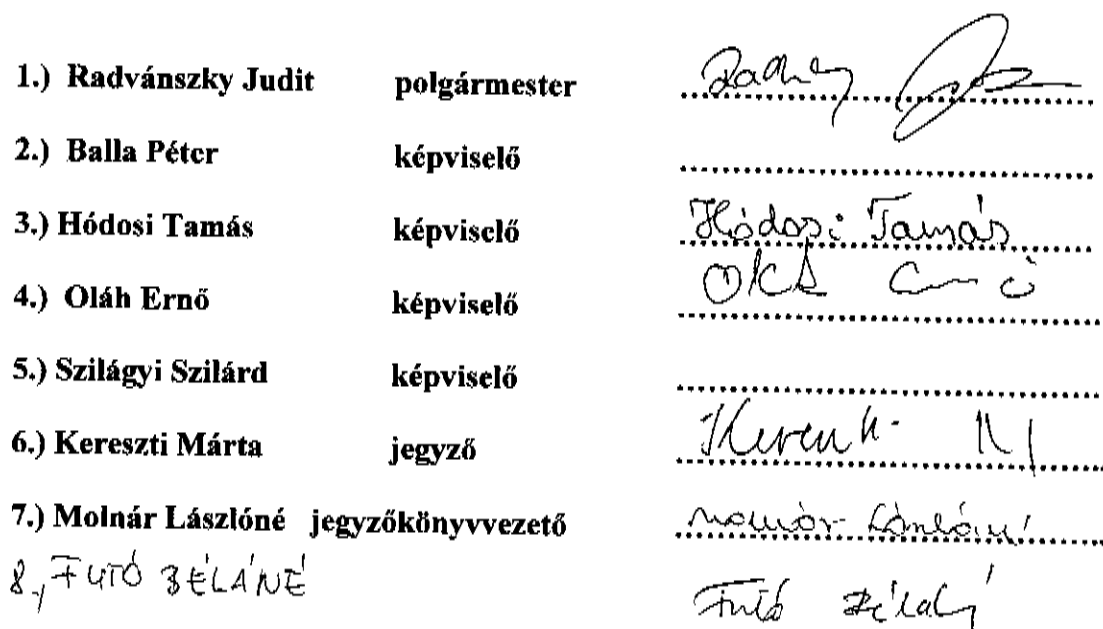 1.) Radvánszky Judit polgármester
2.) Balla Péter képviselő ........................................
3.) Hódosi Tamás képviselő Hódosi Tamás
4.) Oláh Ernő képviselő
5.) Szilágyi Szilárd képviselő ........................................
6.) Kereszti Márta jegyző
7.) Molnár Lászlóné jegyzőkönyvvezető Molnár Lászlóné
8., FUTÓ BÉLÁNÉ Futó